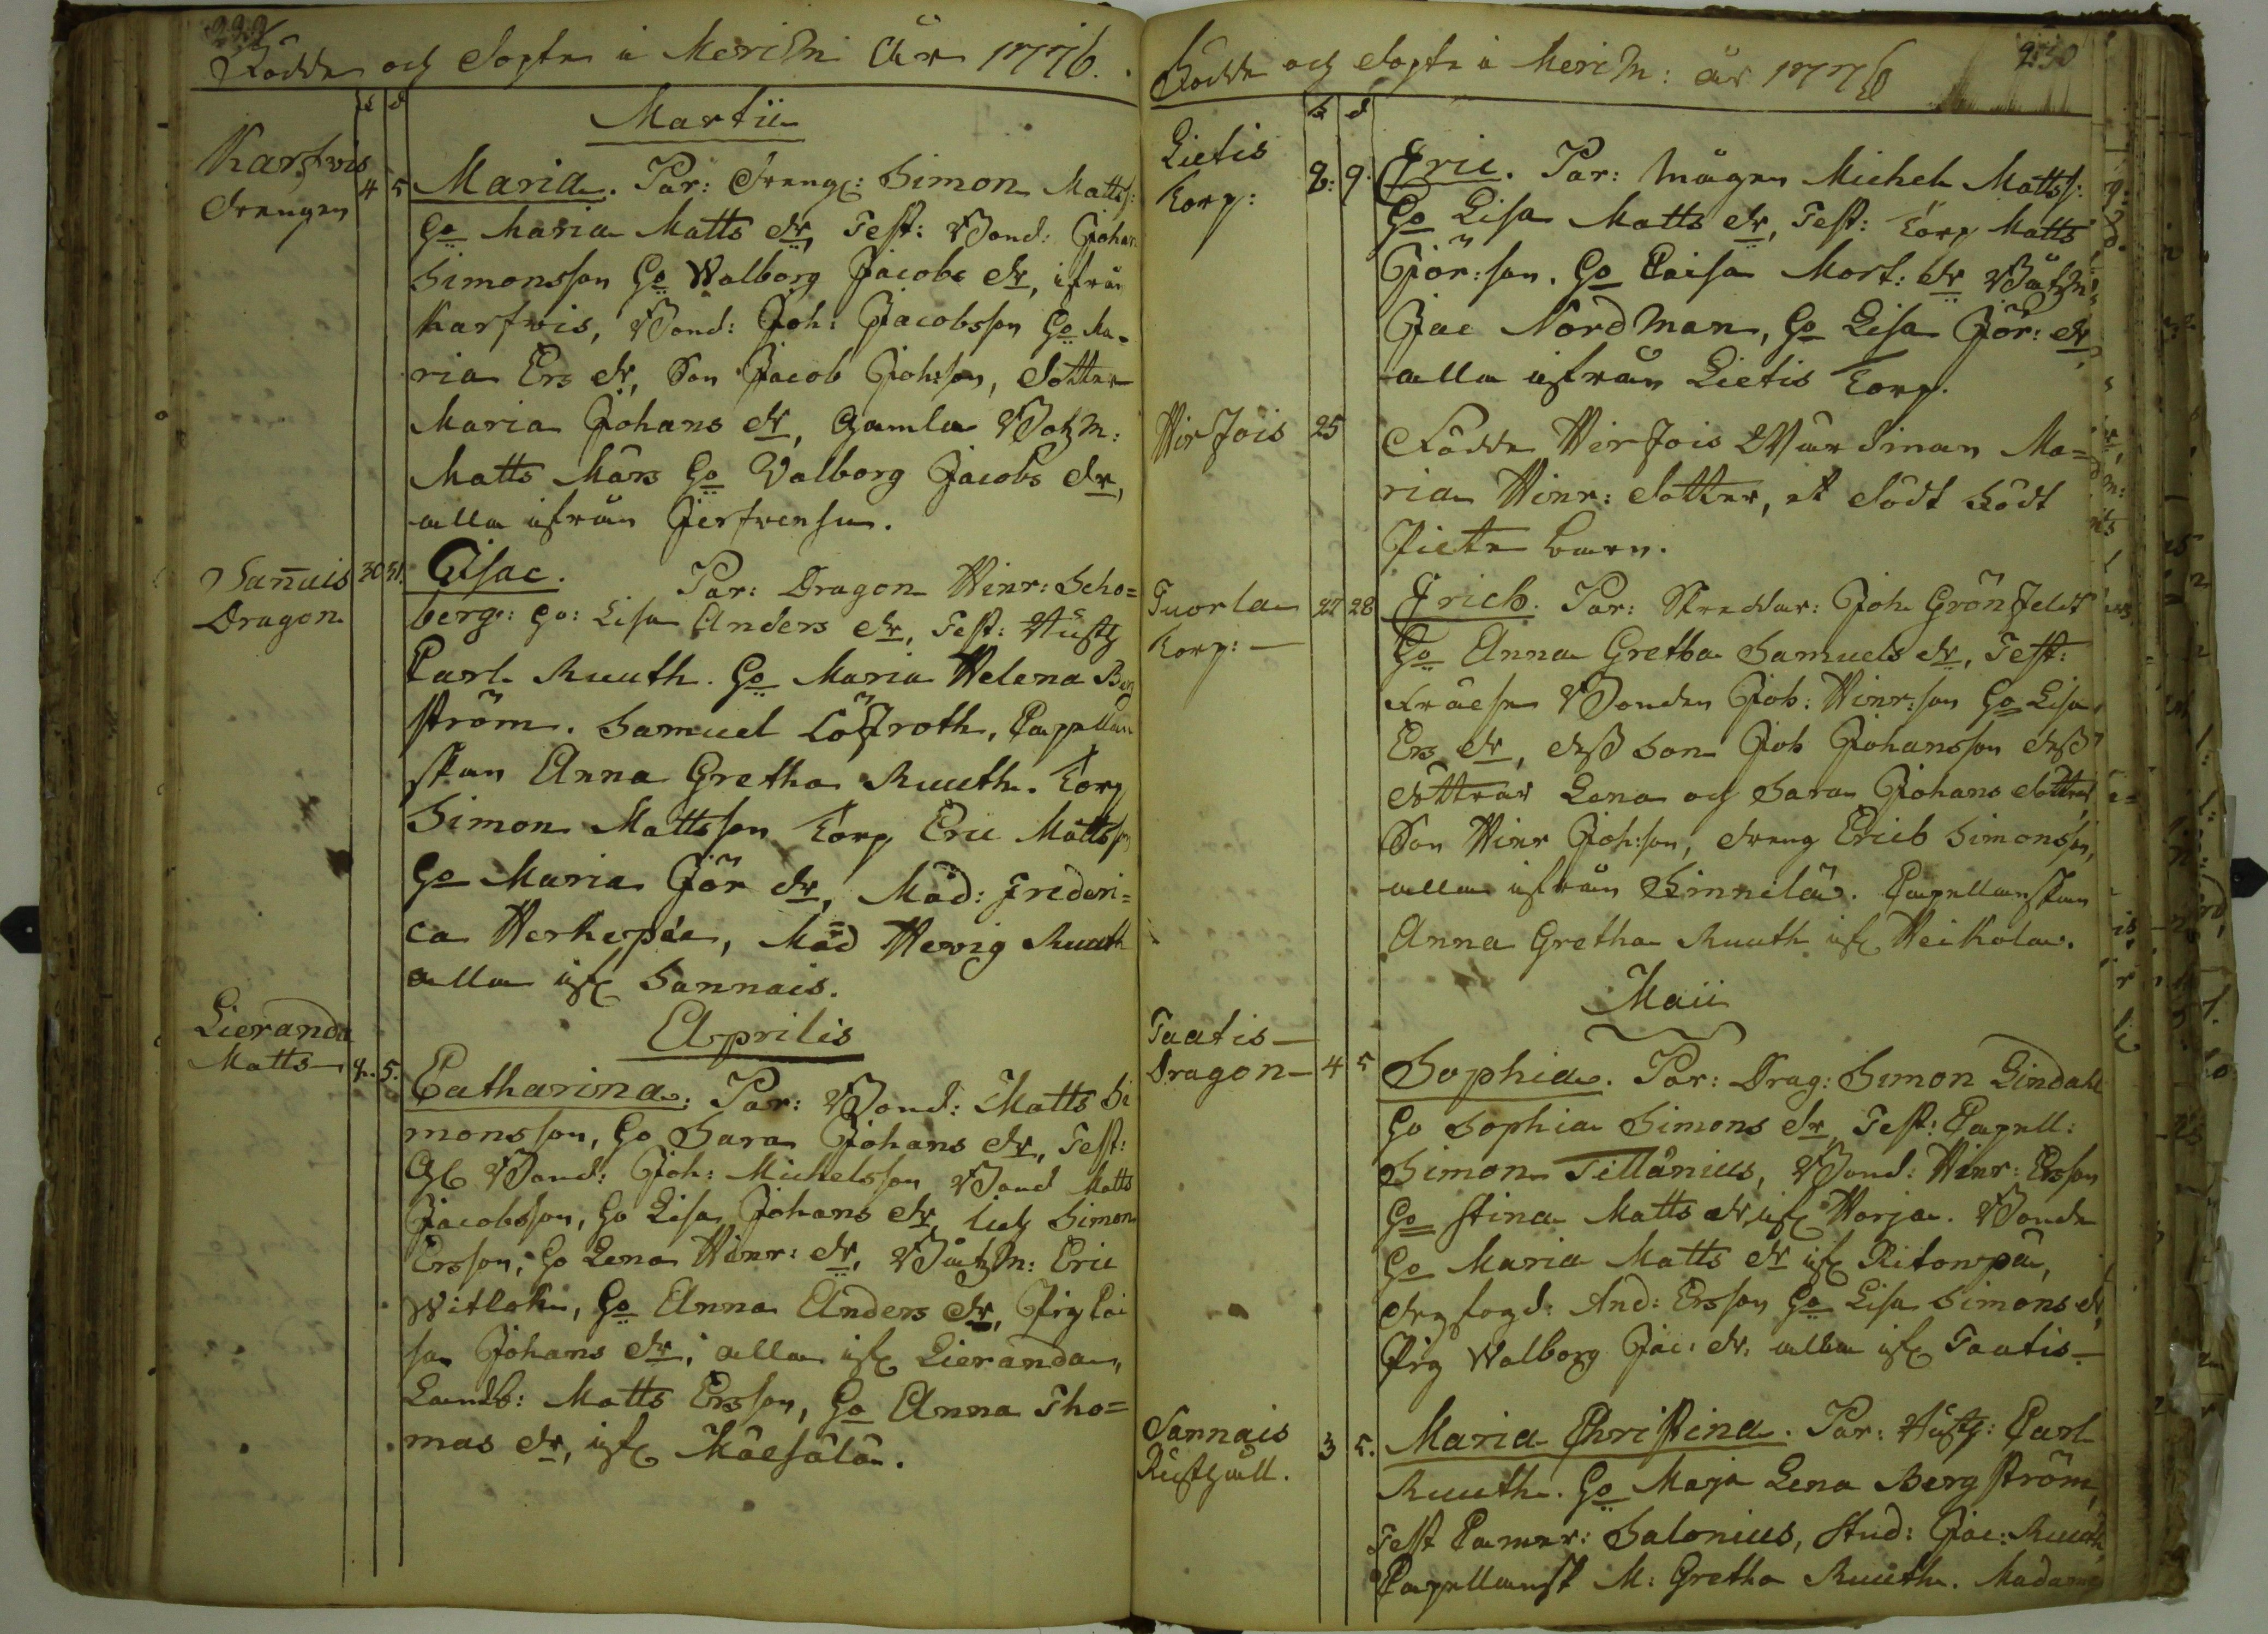 229
Födde och Döpte i MeriM År 1776.
f d
Martii
Karfvis
Drengen
4 5 Maria. Par: Dreng: Simon Matts:
Ho Maria Matts dr, Test: Bond: Johan
Simonsson Ho Walborg Jacobs dr, ifrån
Karfvis, Bond: Joh: Jacobsson Ho Ma-
ria Ers dr, Son Jacob Johsson, Dotter
Maria Johans dr, gamla Botzm:
Matts Mårs Ho Valborg Jacobs dr,
alla ifrån
Sannais
Dragon
30 31. Isac. Par: Dragon Hinr: Scho=
berg: Ho: Lisa Anders dr, Test: Rusth
Carl Ruuth. Ho Maria Helena Berg
ström. Samuel Löfroth, Capellan
skan Anna Gretha Ruuth. Torp
Simon Mattsson Torp Eric Mattss
Ho Maria Jör dr, Mad: Frederi=
ca Herkepæa, Mad Hevig Ruuth
alla if Sannais.
Aprilis
Lieranda
Matts
4. 5. Catharina. Par: Bond: Matts Si
monsson, Ho Sara Johans dr, Test:
Gl Bond: Joh: Michelsson Bond Matts
Jacobsson, Ho Lisa Johans dr, Simon
Ersson, Ho Lena Hinr: dr, BåtzM: Eric
Witlok, Ho Anna Anders dr, Pig Cai
sa Johans dr, alla if Lieranda,
Landb: Matts Ersson, Ho Anna Tho=
mas dr, if Käesälä.
230
Födde och Döpte i MeriM: år 1776
f d
Lietis
Torp:
8: 9. Eric. Par: Mågen Michel Matts:
Ho Lisa Matts dr, Test: Torp Matts
Jör:son. Ho Caisa Mort: dr BåtzM:
Jac Nordman, Ho Lisa Jör: dr,
alla ifrån Lietis Torp.
Wirjois 25 Födde Wirjois Ma=
ria Hinr: Dotter, et Dödt född
barn.
Tuorla
Torp:
27 28 Erich. Par: Skreddar: Joh Grönfeldt
Ho Anna Gretha Samuels dr, Test:
Bonden Joh: Hinr:son Ho Lisa
Ers dr, dess Son Joh Johansson dess
döttrar Lena och Sara Johans Döttrar
Son Hinr Joh:son, dreng Erich Simonss,
alla ifrån Kinnilä. Capellanskan
Anna Gretha Ruuth if Heikola.
Maii
Taatis
Dragon 4 5 Sophia. Par: Drag: Simon Lindahl
Ho Sophia Simons dr, Test: Capell:
Simon Tillänius, Bond: Hinr: Ersson
Ho Stina Matts dr, if Horja. Bonde
Ho Maria Matts dr if Ritonpä,
fogd: And: Ersson Ho Lisa Simons dr,
Pig Walborg Jac: dr. alla if Taatis
Sannais
Rusthåll. 3 5. Maria Christina. Par: Rusth: Carl
Ruuth. Ho Maja Lena Bergström,
Test Camer: Salonius, Stud: Jac: Ruuth,
Capellansk M: Gretha Ruuth. Madame